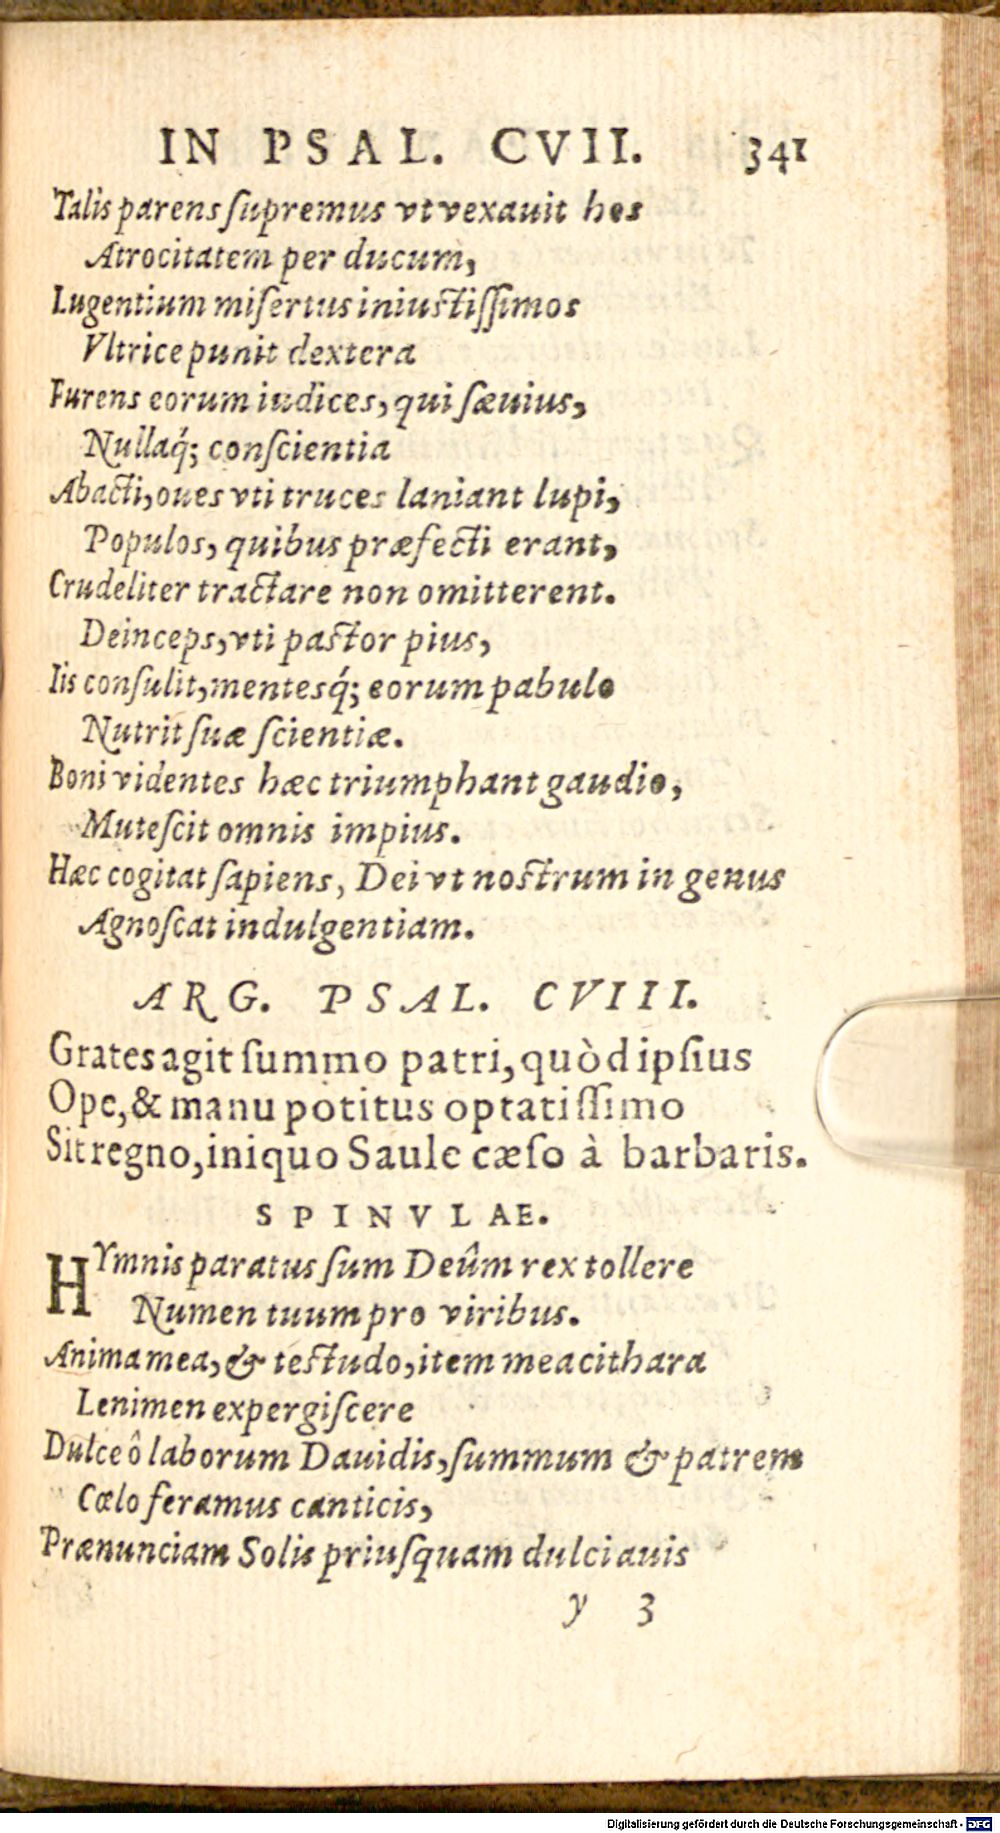 IN PSAL. CVII. 341
Talis parens ſupremus vt vexauit hos
Atrocitatem per ducum,
Lugentium miſertus iniuſtiſſimos
Vltrice punit dextera
Furens eorum iudices, qui ſæuius,
Nullaq́; conſcientia
Abacti, oues vti truces laniant lupi,
Populos, quibus præfecti erant,
Crudeliter tractare non omitterent.
Deinceps, vti paſtor pius,
Iis conſulit, mentesq́; eorum pabulo
Nutrit ſuæ ſcientiæ.
Boni videntes hæc triumphant gaudio,
Muteſcit omnis impius.
Hæc cogitat ſapiens, Dei vt noſtrum in genus
Agnoſcat indulgentiam.
ARG. PSAL. CVIII.
Grates agit ſummo patri, quòd ipſius
Ope, & manu potitus optatiſſimo
Sit regno, iniquo Saule cæſo à barbaris.
SPINVLAE.
HYmnis paratus ſum Deûm rex tollere
Numen tuum pro viribus.
Anima mea, & teſtudo, item mea cithara
Lenimen expergiſcere
Dulce ô laborum Dauidis, ſummum & patrem
Cœlo feramus canticis,
Prænunciam Solis priuſquam dulci auis
y 3
Digitalisierung gefördert durch die Deutsche Forschungsgemeinschaft - DFG